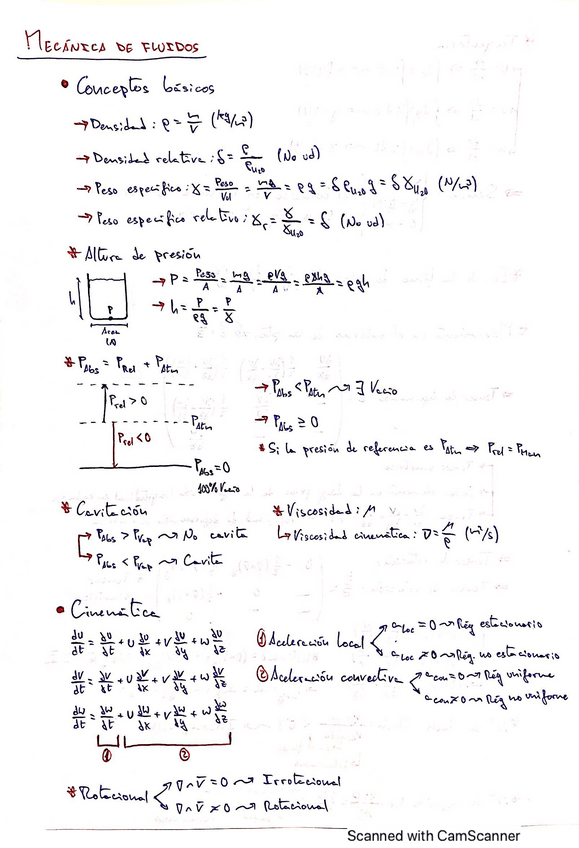 MECÁNICA DE FLUIDOS
• Conceptos básicos
→ Densidad: ρ = m/V (kg/m³)
→ Densidad relativa: δ = ρ/ρ_H₂O (No ud)
→ Peso específico: γ = Peso/Vol = mg/V = ρg = δ ρ_H₂O g = δ γ_H₂O (N/m³)
→ Peso específico relativo: γ_r = γ/γ_H₂O = δ (No ud)
* Altura de presión
h P Área (A)
→ P = Peso/A = mg/A = ρVg/A = ρAhg/A = ρgh
→ h = P/ρg = P/γ
* P_Abs = P_Rel + P_Atm
P_rel > 0
P_Atm
P_rel < 0
P_Abs = 0
100% Vacío
→ P_Abs < P_Atm ⇝ ∃ Vacío
→ P_Abs ≥ 0
* Si la presión de referencia es P_Atm ⇒ P_rel = P_Man
* Cavitación
→ P_Abs > P_Vap ⇝ No cavita
→ P_Abs < P_Vap ⇝ Cavita
* Viscosidad: μ
↳ Viscosidad cinemática: ν = μ/ρ (m²/s)
• Cinemática
du/dt = ∂u/∂t + u ∂u/∂x + v ∂u/∂y + w ∂u/∂z
dv/dt = ∂v/∂t + u ∂v/∂x + v ∂v/∂y + w ∂v/∂z
dw/dt = ∂w/∂t + u ∂w/∂x + v ∂w/∂y + w ∂w/∂z
① ②
① Aceleración local
a_loc = 0 ⇝ Rég estacionario
a_loc ≠ 0 ⇝ Rég. no estacionario
② Aceleración convectiva
a_con = 0 ⇝ Rég uniforme
a_con ≠ 0 ⇝ Rég no uniforme
* Rotacional
∇∧V̄ = 0 ⇝ Irrotacional
∇∧V̄ ≠ 0 ⇝ Rotacional
Scanned with CamScanner